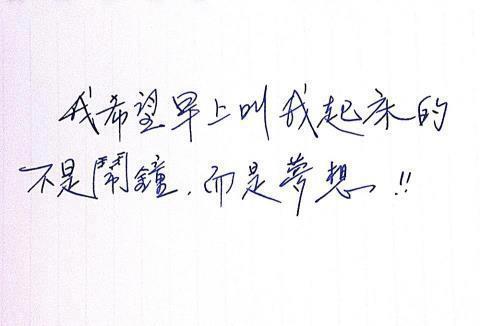 我希望早上叫我起床的
不是鬧鐘，而是夢想！！